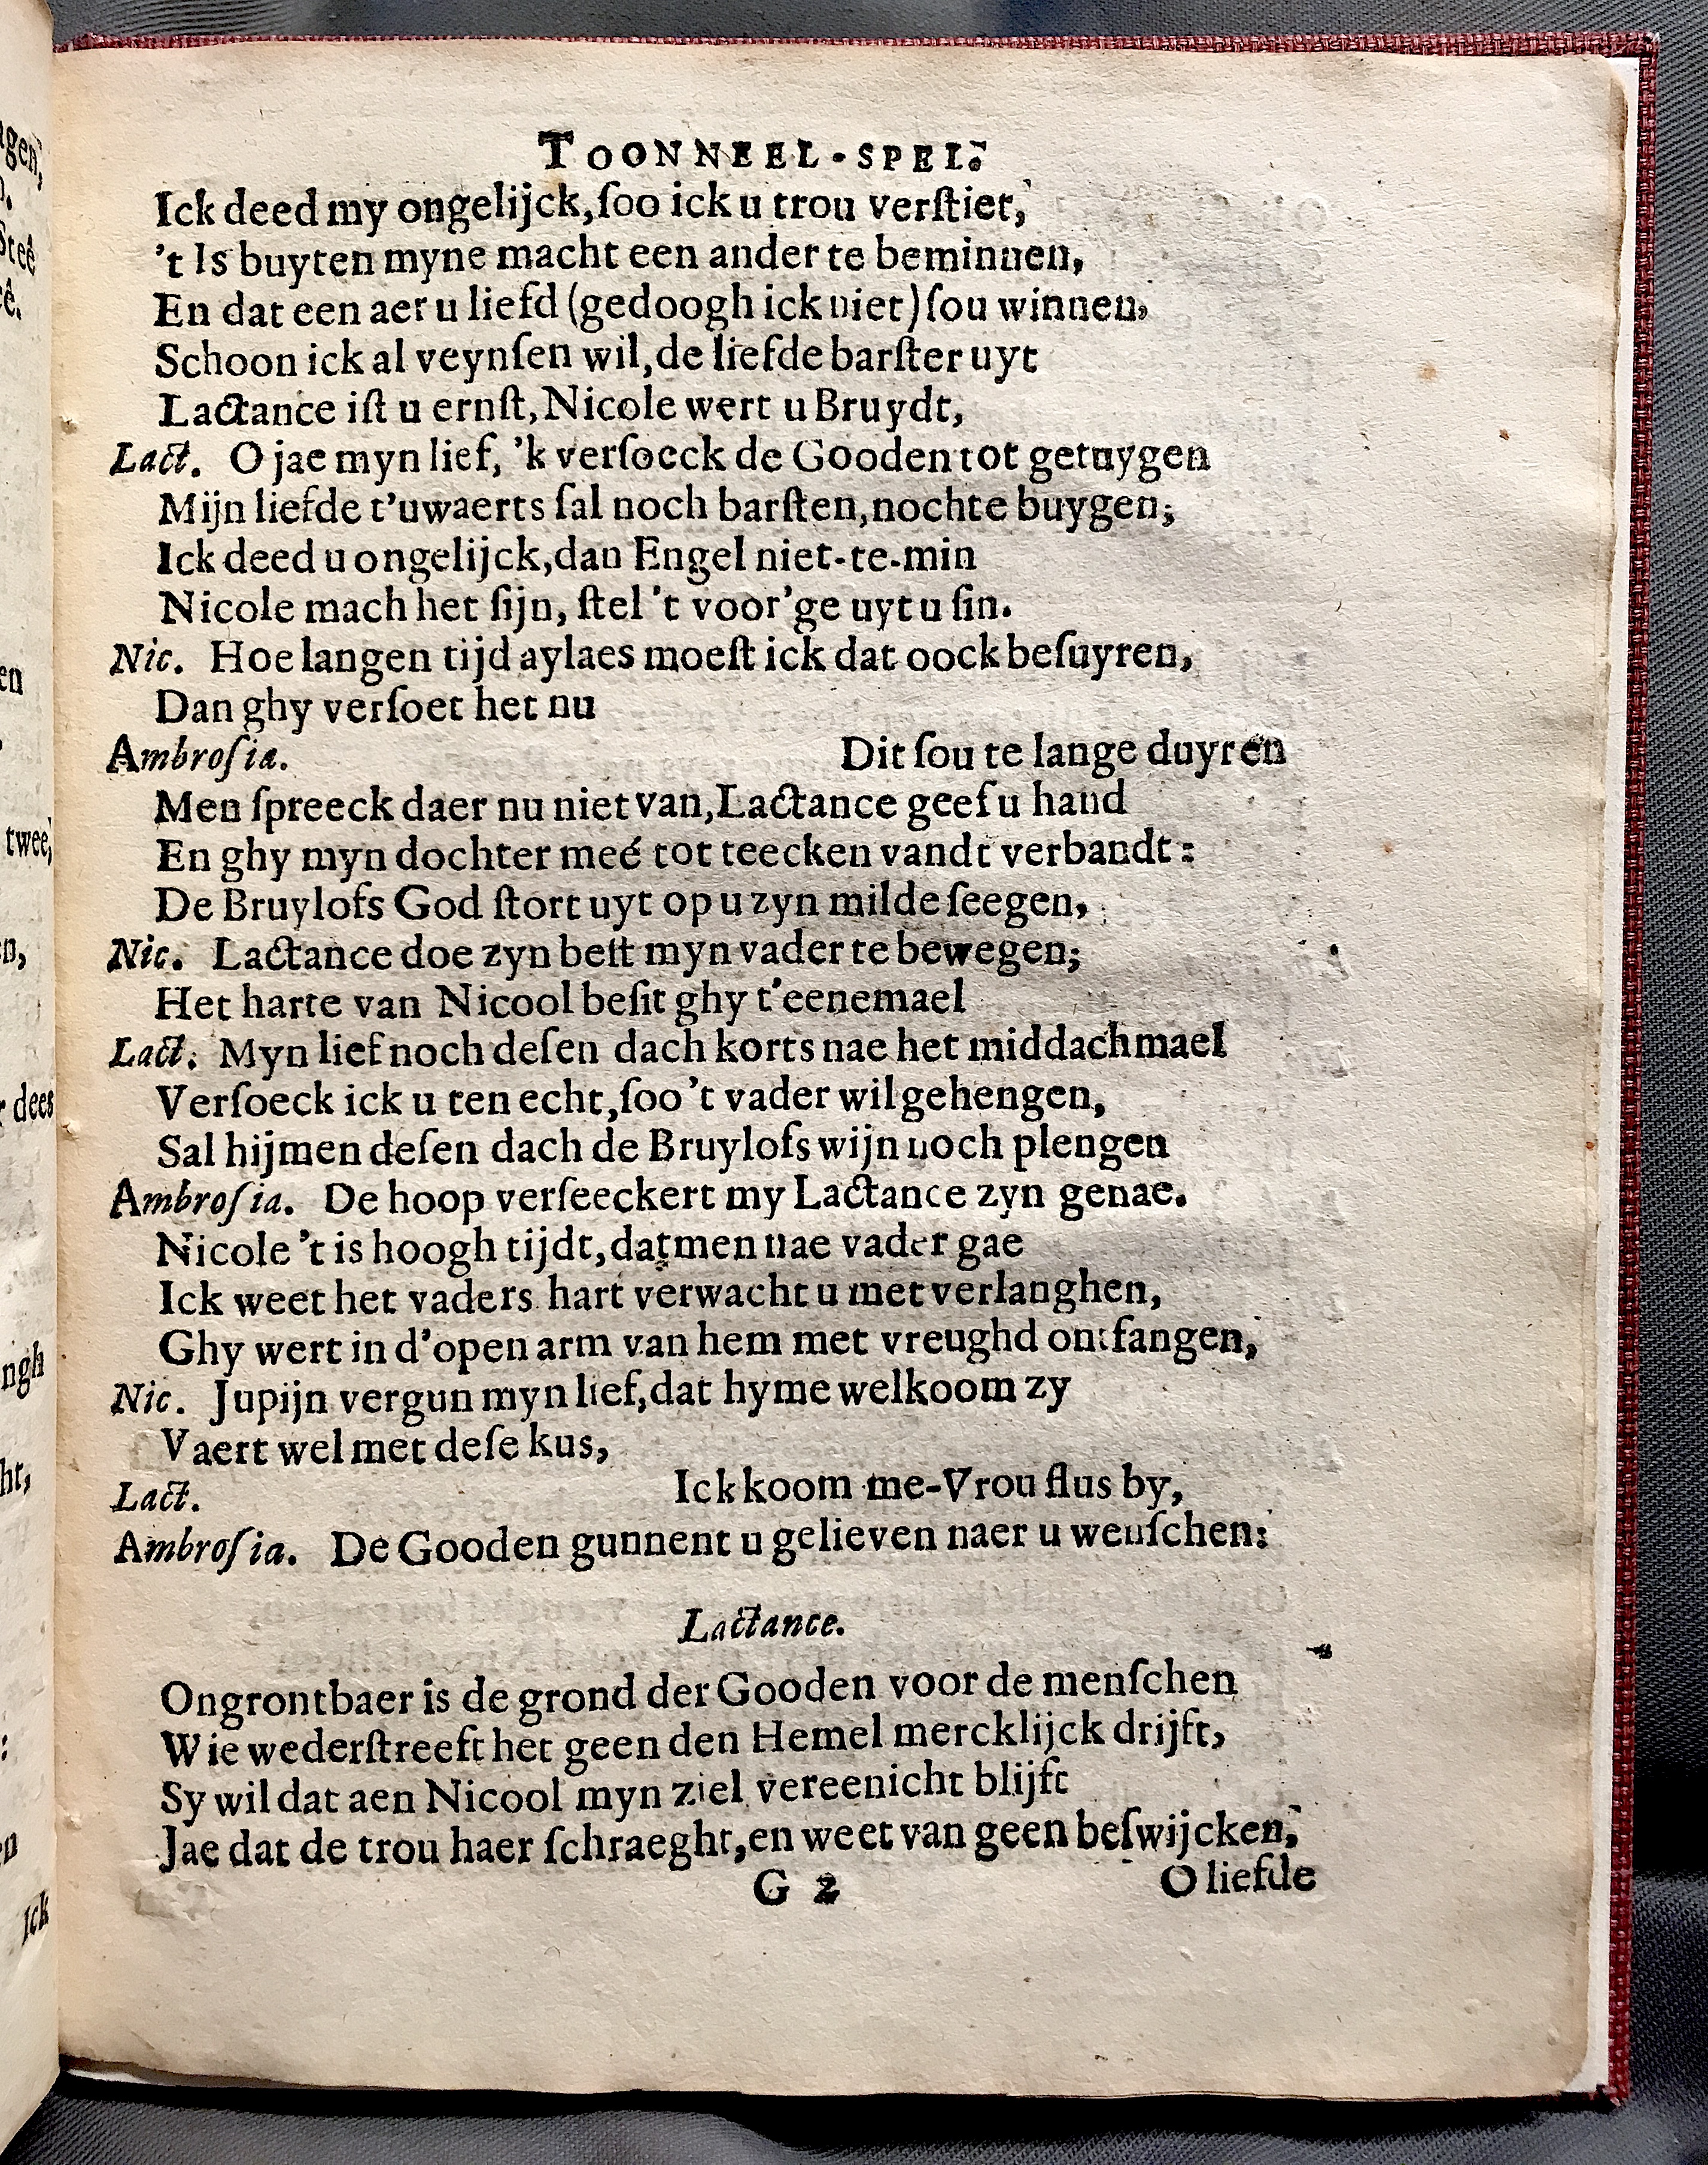 TOONNEEL-SPEL.
Ick deed my ongelijck, ſoo ick u trou verſtiet,
't Is buyten myne macht een ander te beminnen,
En dat een aer u liefd (gedoogh ick niet) ſou winnen,
Schoon ick al veynſen wil, de liefde barſter uyt
Lactance iſt u ernſt, Nicole wert u Bruydt,
Lact. O jae myn lief, 'k verſoeck de Gooden tot getuygen
Mijn liefde t'uwaerts ſal noch barſten, nochte buygen;
Ick deed u ongelijck, dan Engel niet-te-min
Nicole mach het ſijn, ſtel 't voor'ge uyt u ſin.
Nic. Hoe langen tijd aylaes moeſt ick dat oock beſuyren,
Dan ghy verſoet het nu
Ambroſia. Dit ſou te lange duyren
Men ſpreeck daer nu niet van, Lactance geef u hand
En ghy myn dochter meé tot teecken vandt verbandt:
De Bruylofs God ſtort uyt op u zyn milde ſeegen,
Nic. Lactance doe zyn beſt myn vader te bewegen;
Het harte van Nicool beſit ghy t'eenemael
Lact. Myn lief noch deſen dach korts nae het middachmael
Verſoeck ick u ten echt, ſoo 't vader wil gehengen,
Sal hijmen deſen dach de Bruylofs wijn noch plengen
Ambroſia. De hoop verſeeckert my Lactance zyn genae.
Nicole 't is hoogh tijdt, datmen nae vader gae
Ick weet het vaders hart verwacht u met verlanghen,
Ghy wert in d'open arm van hem met vreughd ontfangen,
Nic. Jupijn vergun myn lief, dat hyme welkoom zy
Vaert wel met deſe kus,
Lact. Ick koom me-Vrou flus by,
Ambroſia. De Gooden gunnent u gelieven naer u wenſchen:
Lactance.
Ongrontbaer is de grond der Gooden voor de menſchen
Wie wederſtreeft het geen den Hemel mercklijck drijft,
Sy wil dat aen Nicool myn ziel vereenicht blijft
Jae dat de trou haer ſchraeght, en weet van geen beſwijcken,
G 2 O liefde